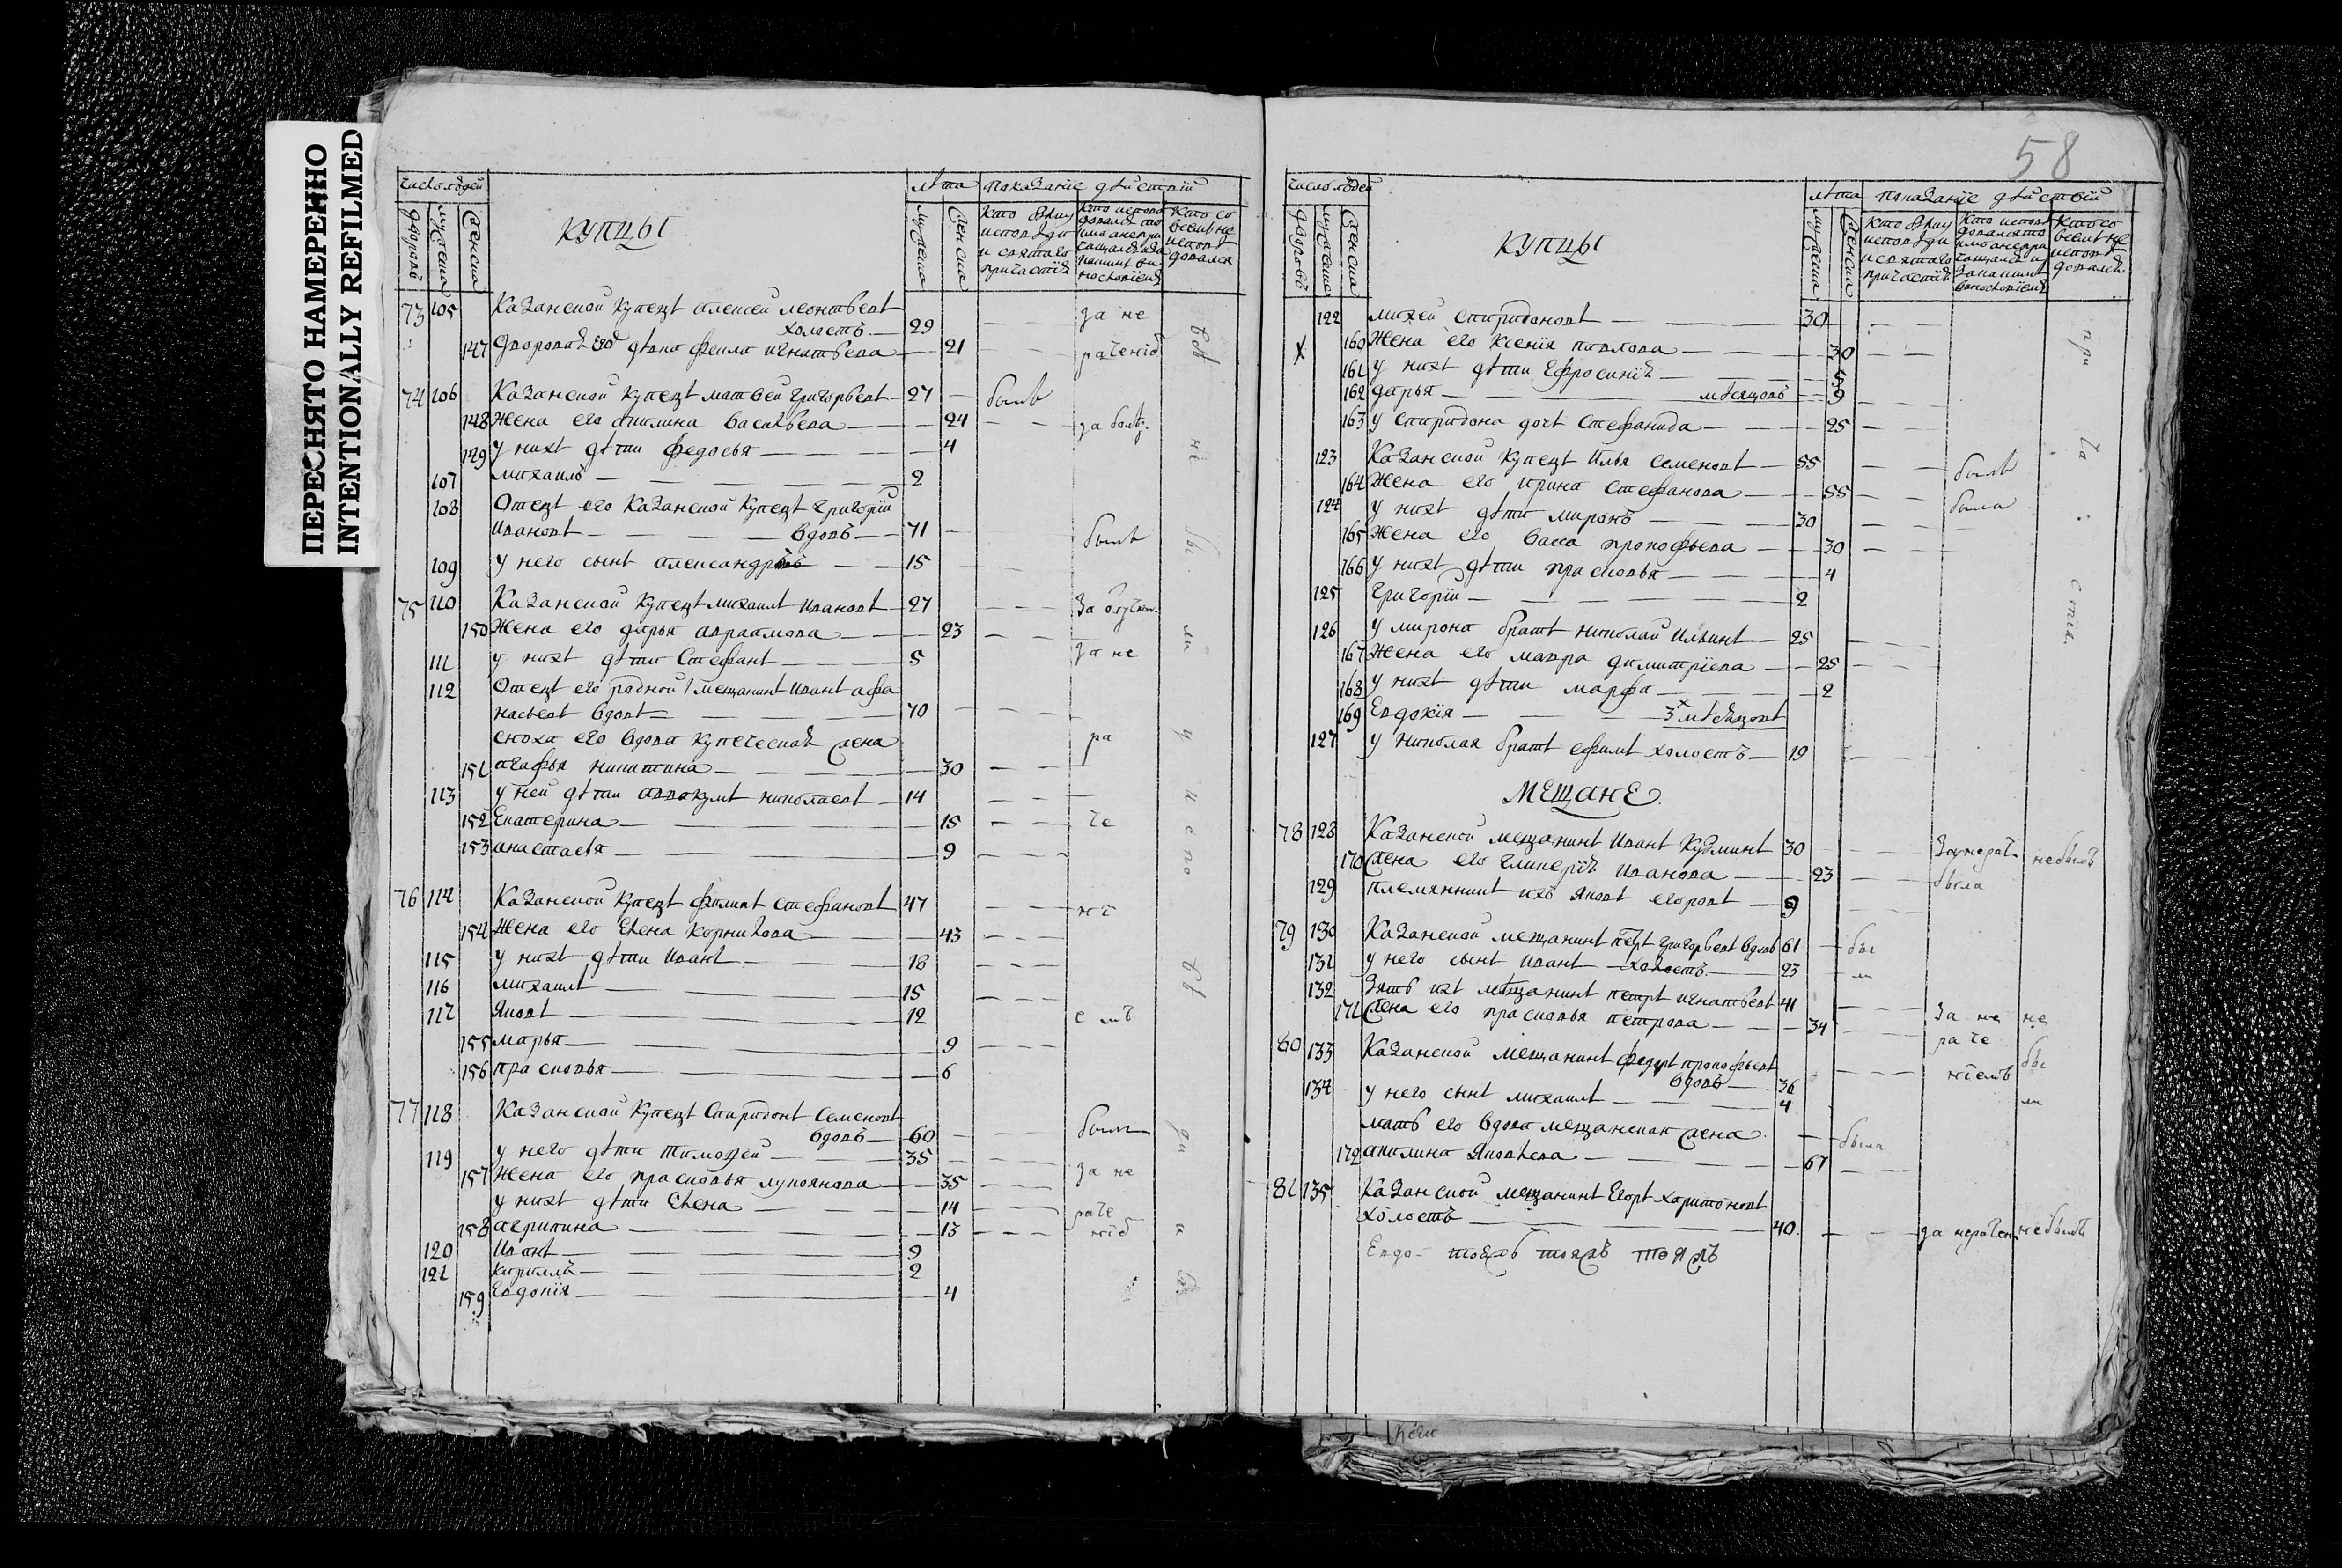 ПЕРЕСНЯТО НАМЕРЕННО
INTENTIONALLY REFILMED
число людей
дворовъ
мужеска
женска
КУПЦЫ
лѣта
мужеска
женска
показаніе дѣйствій
кто былъ у исповѣди и святаго причастія
кто со всемъ не исповѣдовался
73 105 Казанской купецъ алексей леонтьевъ
холостъ — 29 за не
147 дворовая его дѣвка фекла игнатьева — 21 раченіе
74 106 Казанской купецъ матвей григорьевъ — 27 былъ
148 Жена его акилина васильева — 24
149 у нихъ дѣти федосья — 4
107 михаилъ — 2
108 Отецъ его Казанской купецъ григорій
ивановъ — вдовъ — 71 былъ
109 у него сынъ александръ — 15
75 110 Казанской купецъ михаилъ ивановъ — 27
150 Жена его дарья авраамова — 23 за не
111 у нихъ дѣти Стефанъ — 5
112 Отецъ его родной мещанинъ иванъ афа
насьевъ вдовъ — 70
сноха его вдова купеческая жена ра
151 агафья никитина — 30
113 у ней дѣти аввакумъ николаевъ — 14
152 Екатерина — 15 че
153 анастасья — 9
76 114 Казанской купецъ филипъ стефановъ 47 ні
154 Жена его Елена корнилова — 43
115 у нихъ дѣти иванъ — 18
116 михаилъ — 15
117 яковъ — 12 емъ
155 марья — 9
156 прасковья — 6
77 118 Казанской купецъ Спиридонъ Семеновъ
вдовъ — 60 были
119 у него дѣти тимофей — 35
157 Жена его прасковья лукоянова — 35 за не
у нихъ дѣти Елена — 14 раче
158 агрипина — 13 ніе
120 иванъ — 9
121 кирилъ — 2
159 Евдокія — 4
58
число людей
дворовъ
мужеска
женска
КУПЦЫ
лѣта
мужеска
женска
показаніе дѣйствій
кто былъ у исповѣди и святаго причастія
кто со всемъ не исповѣдовался
122 михей спиридоновъ — 30 при
160 Жена его Ксенія павлова — 30
161 у нихъ дѣти Ефросинія — 5
162 дарья — мѣсяцовъ — 9
163 у спиридона дочь Стефанида — 25
123 Казанской купецъ Илья семеновъ — 55 былъ ча
164 Жена его ирина стефанова — 55 была
124 у нихъ дѣти миронъ — 30
165 Жена его васса прокофьева — 30
166 у нихъ дѣти прасковья — 4
125 григорій — 2 стія
126 у мирона братъ николай ильинъ — 25
167 Жена его мавра димитріева — 25
168 у нихъ дѣти марфа — 2
169 Евдокія — 3 мѣсяцовъ
127 у николая братъ ефимъ холостъ — 19
МЕЩАНЕ
78 128 Казанской мещанинъ иванъ кузминъ 30 небылъ
170 жена его гликерія иванова — 23 была
129 племянникъ ихъ яковъ егоровъ — 9
79 130 Казанской мещанинъ петръ григорьевъ вдовъ 61 бы
131 у него сынъ иванъ — холостъ — 23 ли
132 Зять ихъ мещанинъ петръ игнатьевъ 41
171 жена его прасковья петрова — 34 за не не
80 133 Казанской мещанинъ федоръ прокофьевъ раче
вдовъ — 36 ніемъ бы
134 у него сынъ михаилъ — 4 ли
мать его вдова мещанская жена — была
172 акилина яковлева — 61
81 135 Казанской мещанинъ Егоръ харитоновъ
холостъ — 40 за нерачен небылъ